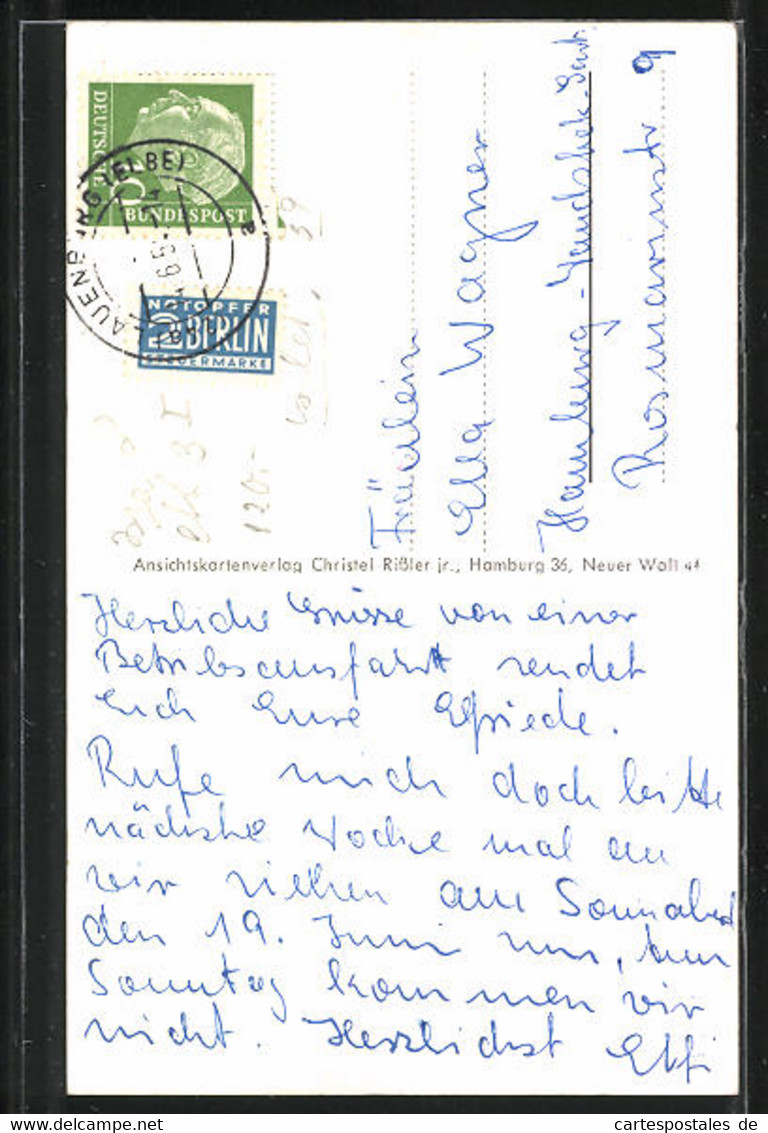 DEUTSCHE
BUNDESPOST
LAUENBURG (ELBE)
NOTOPFER
2 BERLIN
STEUERMARKE
120.-
Fräulein
Ella Wagner
Hamburg -
Rosmarinstr 9
Ansichtskartenverlag Christel Rißler jr., Hamburg 36, Neuer Wall 44
Herzliche Grüsse von einer
Betribsausfahrt sendet
Euch Eure Elfriede.
Rufe mich doch bitte
nächste Woche mal an
wir ziehen am Sonnabend
den 19. Juni um,
Sonntag kommen wir
nicht. Herzlichst Elfi
cartespostales de